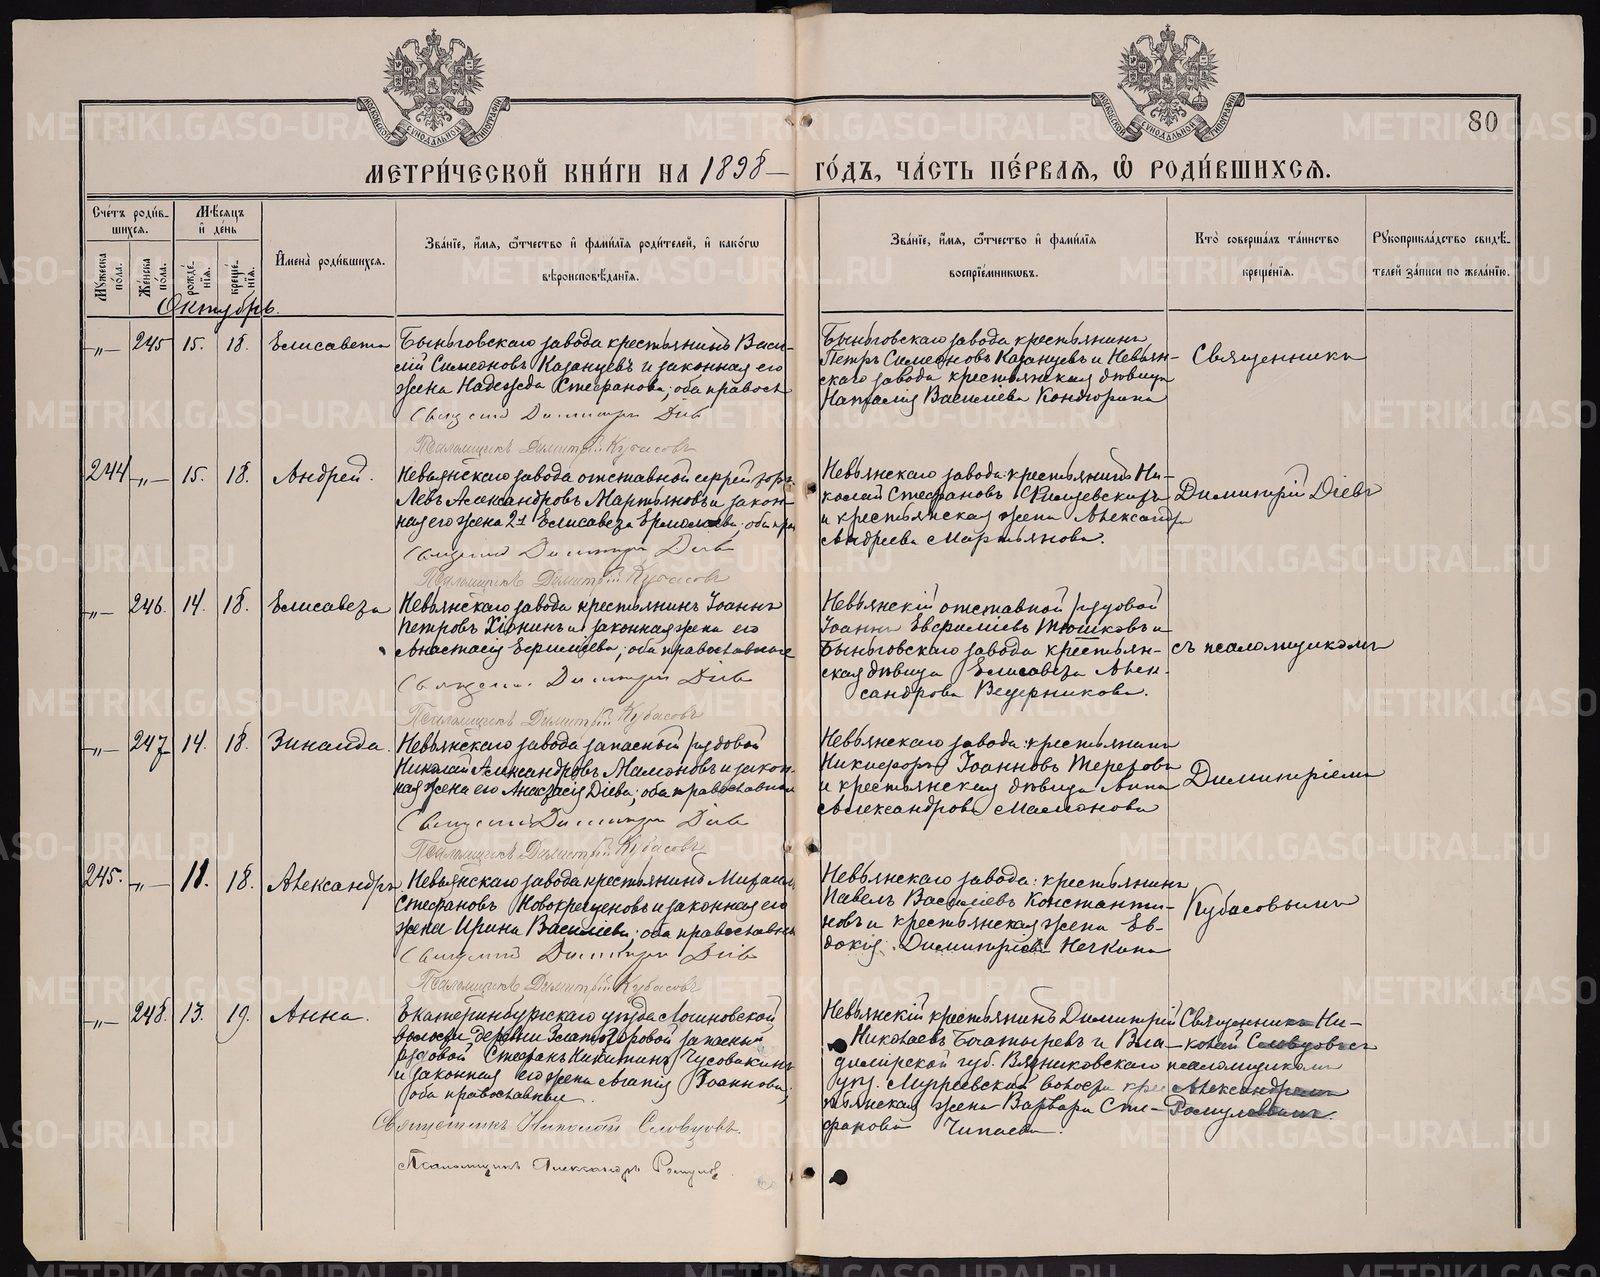 80
МЕТРИ́ЧЕСКОЙ КНИ́ГИ НА 1898 ГО́ДЪ, ЧА́СТЬ ПЕ́РВАЯ, Ѿ РОДИ́ВШИХСЯ.
Сче́тъ роди́в-
шихся.
Мѣ́сяцъ
и́ де́нь
Му́жеска по́ла.
Же́нска по́ла.
рожде́нїя.
креще́нїя.
И́мена̀ роди́вшихся.
Зва́нїе, и́мя, ѻ҆́тчество и́ фами́лїя роди́телей, и́ како́гѡ
вѣроисповѣ́данїя.
Зва́нїе, и́мя, ѻ҆́тчество и́ фами́лїя
воспрїе́мникѡвъ.
Кто̀ соверша́лъ та́инство
креще́нїя.
Рукоприкла́дство свидѣ́-
телей за́писи по жела́нїю.
Октябрь.
-„- 245 15. 18. Елисавета
Быньговскаго завода крестьянинъ Васи-
лій Симеоновъ Казанцевъ и законная его
жена Надежда Стефанова; оба правосл
Священ Димитрій Діевъ
Псаломщикъ Димитрій Кубасовъ
Быньговскаго завода крестьянинъ
Петръ Симеоновъ Казанцевъ и Невьян-
скаго завода крестьянская дѣвица
Наталія Василіева
Священникъ
244 -„- 15. 18. Андрей.
Невьянскаго завода отставной ефрейторъ
Левъ Александровъ Мартьяновъ и закон-
ная его жена 2я Елисавета Ермолаева; оба пра
Священ Димитрій Діевъ
Псаломщикъ Димитрій Кубасовъ
Невьянскаго завода: крестьянинъ Ни-
колай Стефановъ
и крестьянская жена Александра
Андреева Мартьянова.
Димитрій Діевъ
-„- 246. 14. 18. Елисавета
Невьянскаго завода крестьянинъ Іоаннъ
Петровъ Хіонинъ и законная жена его
Анастасія; оба православные
Священ. Димитрій Діевъ
Псаломщикъ Димитрій Кубасовъ
Невьянскій отставной рядовой
Іоаннъ Евфиміевъ Тюшковъ и
Быньговскаго завода крестьян-
ская дѣвица Елисавета Алек-
сандрова Ведерникова.
съ псаломщикомъ
-„- 247 14. 18. Зинаида.
Невьянскаго завода запасной рядовой
Николай Александровъ Мамоновъ и закон-
ная жена его Анастасія Діева; оба православные
Священ Димитрій Діевъ
Псаломщикъ Димитрій Кубасовъ
Невьянскаго завода: крестьянинъ
Никифоръ Іоанновъ Терехов
и крестьянская дѣвица Анна
Александрова Мамонова
Димитріемъ
245. -„- 11. 18. Александръ.
Невьянскаго завода крестьянинъ Михаилъ
Стефановъ Новокрещеновъ и законная его
жена Ирина Василіева; оба православные
Священ Димитрій Діевъ
Псаломщикъ Димитрій Кубасовъ
Невьянскаго завода: крестьянинъ
Павелъ Василіевъ Константи-
новъ и крестьянская жена Ев-
докія Димитріева Нечкина
Кубасовымъ
-„- 248. 13. 19. Анна.
Екатеринбургскаго уѣзда Логиновской
волости деревни Златогоровой запасный
рядовой Стефанъ Никитинъ Чусовитинъ
и законная его жена Агапія Іоаннова;
оба православные.
Священникъ Николай Словцовъ.
Псаломщикъ Александръ Ромулов
Невьянскій крестьянинъ Димитрій
Николаевъ Богатыревъ и Вла-
димірской губ. Вязниковскаго
уѣз. волости крес
тьянская жена Варвара Сте-
фанова
Священникъ Ни-
колай Словцовъ съ
псаломщикомъ
Александромъ